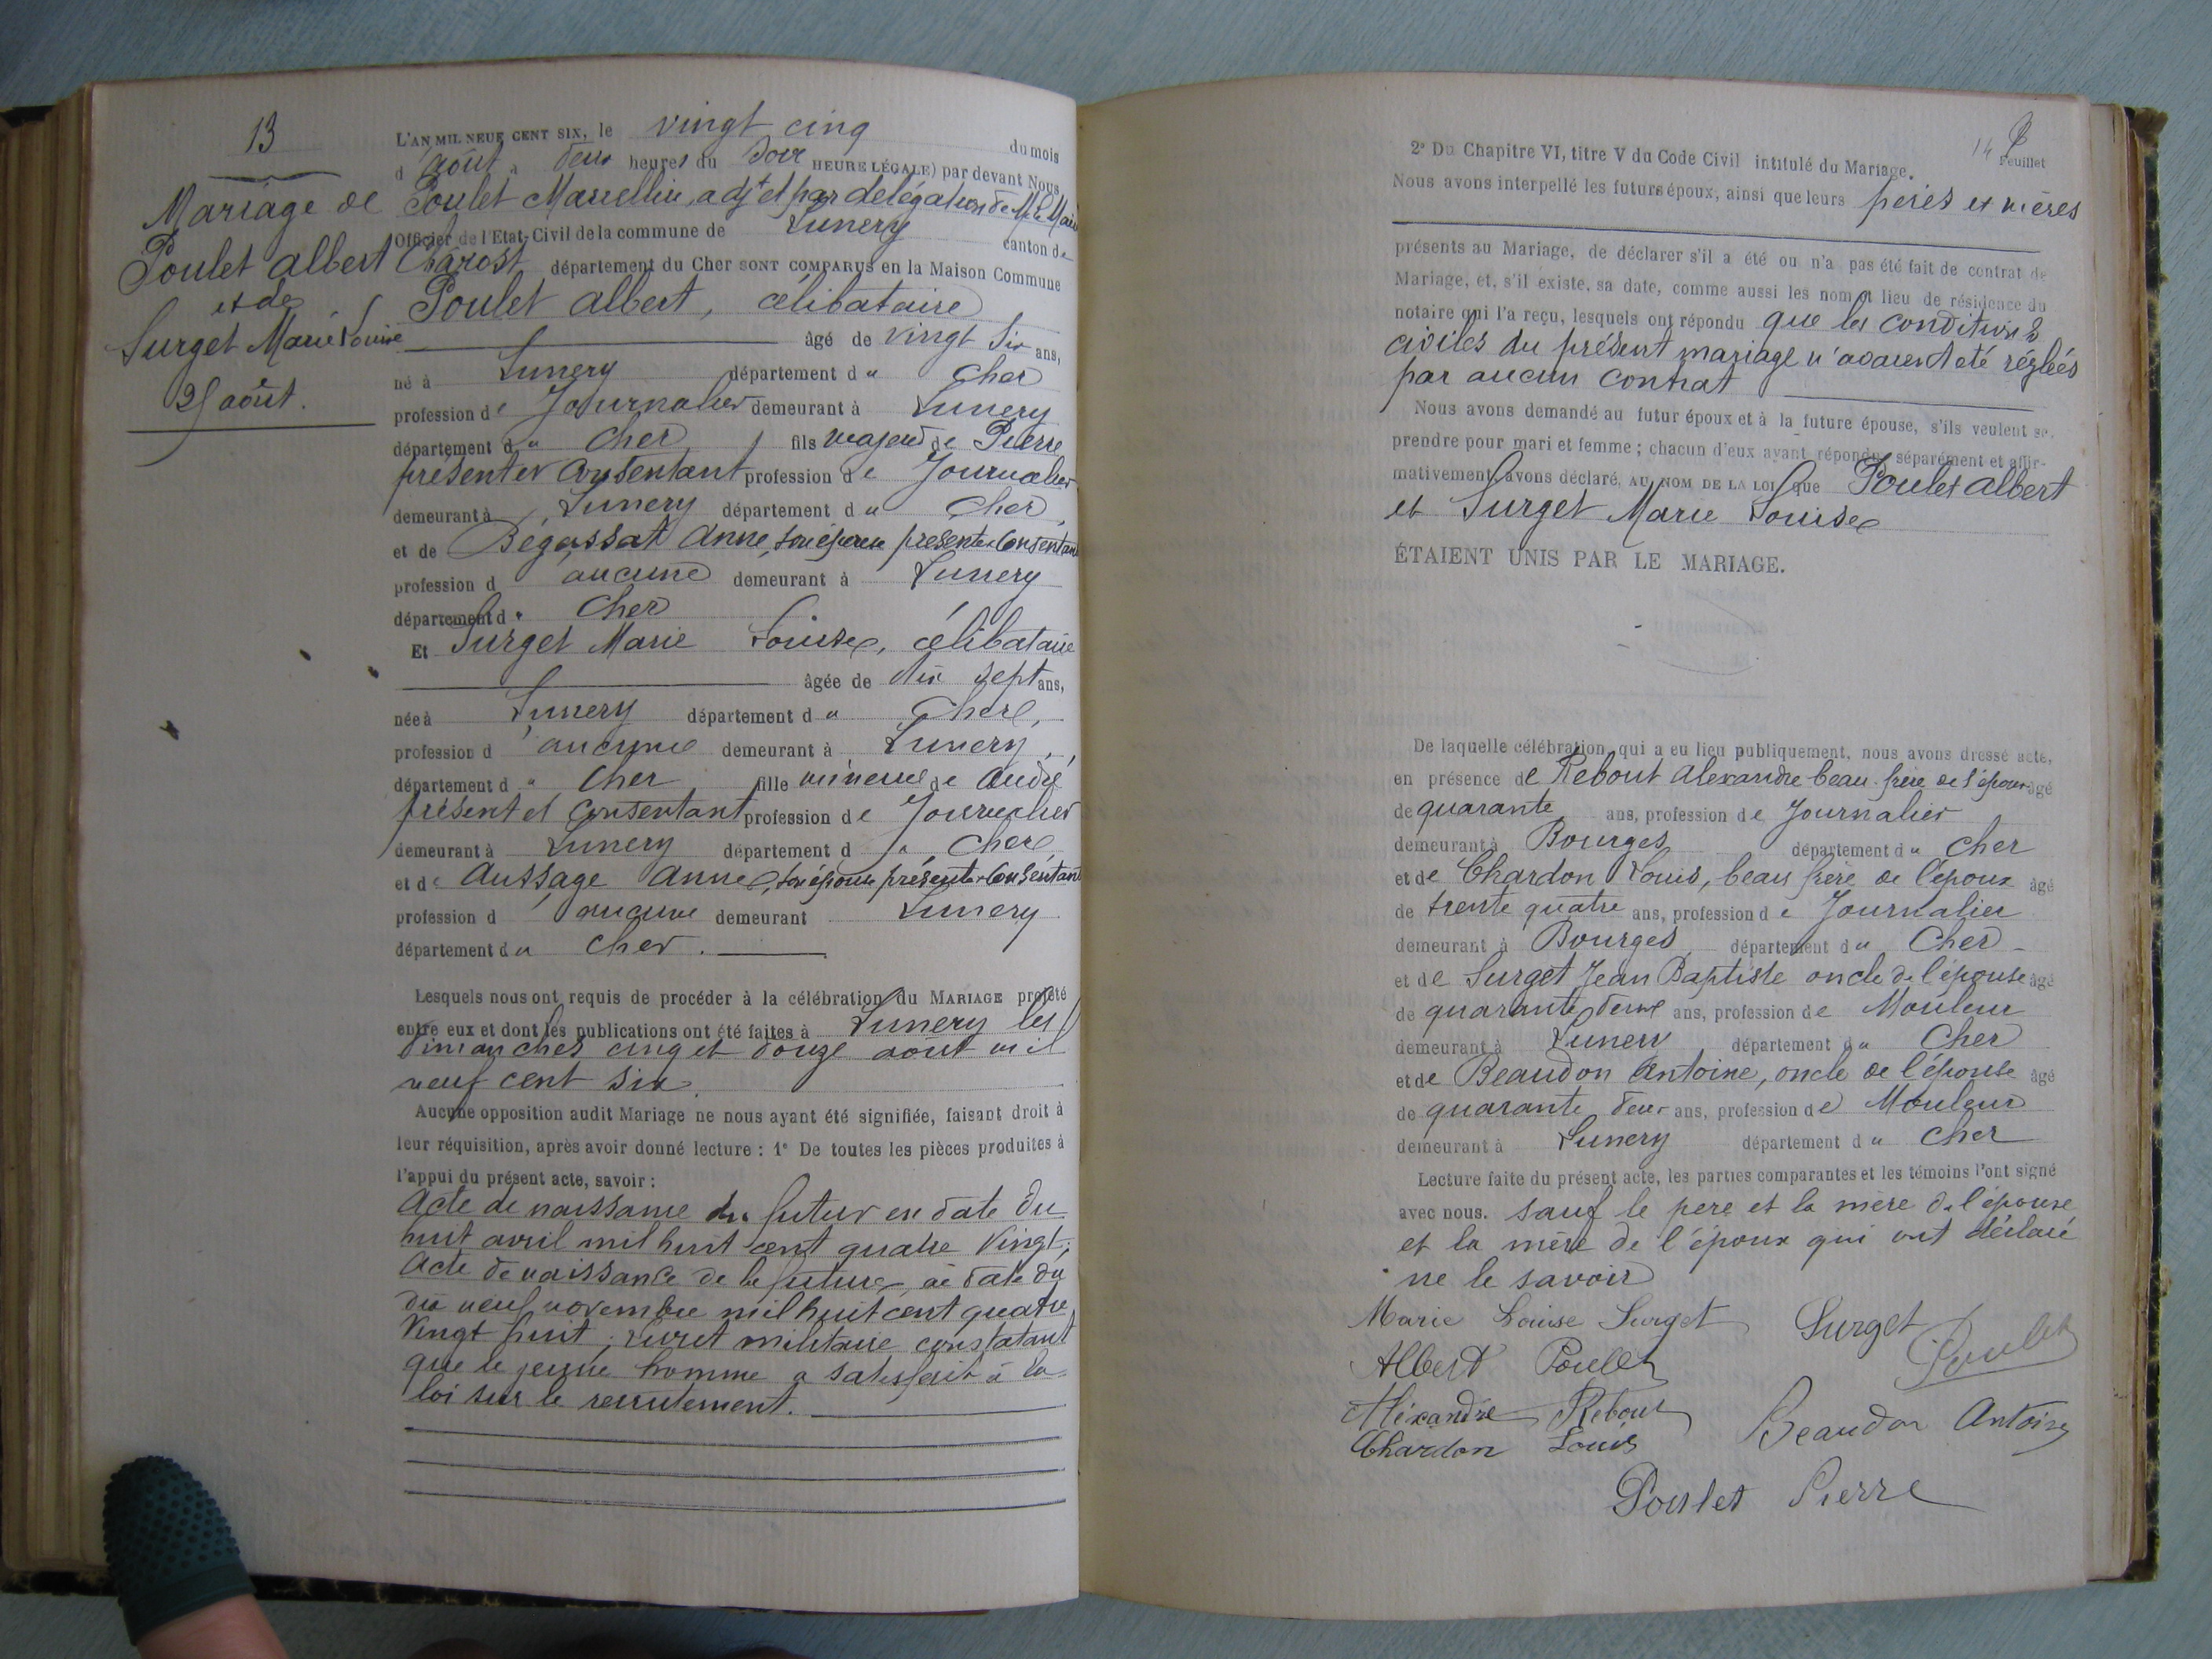 13
Mariage de
Poulet Albert
et de
Surget Marie Louise
25 août.
L'AN MIL NEUF CENT SIX, le vingt cinq du mois
d'août, deux heures du soir HEURE LÉGALE) par devant Nous
Poulet Marcellin, adjt et par délégation de Mr le Maire
Officier de l'Etat-Civil de la commune de Lunery canton de
Chârost département du Cher SONT COMPARUS en la Maison Commune
Poulet Albert, célibataire
âgé de vingt six ans,
né à Lunery département du Cher
profession de Journalier demeurant à Lunery
département du Cher, fils majeur de Pierre
présent et consentant profession de Journalier
demeurant à Lunery département du Cher,
et de Bégassat Anne, son épouse présente & consentant
profession d'aucune demeurant à Lunery
département du Cher
Et Surget Marie Louise, célibataire
âgée de dix sept ans,
née à Lunery département du Cher,
profession d'aucune demeurant à Lunery,
département du Cher fille mineure de André
présent et consentant profession de Journalier
demeurant à Lunery département du Cher
et de Aussage Anne, son épouse présente & consentant
profession d'aucune demeurant Lunery
département du Cher.
Lesquels nous ont requis de procéder à la célébration du MARIAGE projeté
entre eux et dont les publications ont été faites à Lunery les
dimanches cinq et douze août mil
neuf cent six.
Aucune opposition audit Mariage ne nous ayant été signifiée, faisant droit à
leur réquisition, après avoir donné lecture : 1° De toutes les pièces produites à
l'appui du présent acte, savoir :
Acte de naissance du futur en date du
huit avril mil huit cent quatre vingt;
Acte de naissance de la future, en date du
dix neuf novembre mil huit cent quatre
vingt huit; livret militaire constatant
que le jeune homme a satisfait à la
loi sur le recrutement.
14 Feuillet
2° Du Chapitre VI, titre V du Code Civil intitulé du Mariage.
Nous avons interpellé les futurs époux, ainsi que leurs pères et mères
présents au Mariage, de déclarer s'il a été ou n'a pas été fait de contrat de
Mariage, et, s'il existe, sa date, comme aussi les nom et lieu de résidence du
notaire qui l'a reçu, lesquels ont répondu que les conditions
civiles du présent mariage n'avaient été réglées
par aucun contrat
Nous avons demandé au futur époux et à la future épouse, s'ils veulent se
prendre pour mari et femme ; chacun d'eux ayant répondu séparément et affir-
mativement, avons déclaré, AU NOM DE LA LOI, que Poulet Albert
et Surget Marie Louise
ÉTAIENT UNIS PAR LE MARIAGE.
De laquelle célébration, qui a eu lieu publiquement, nous avons dressé acte,
en présence de Rebout Alexandre beau-frère de l'époux âgé
de quarante ans, profession de Journalier
demeurant à Bourges département du Cher
et de Chardon Louis, beau frère de l'époux âgé
de trente quatre ans, profession de Journalier
demeurant à Bourges département du Cher
et de Surget Jean Baptiste oncle de l'épouse âgé
de quarante deux ans, profession de Mouleur
demeurant à Lunery département du Cher
et de Beaudon Antoine, oncle de l'épouse âgé
de quarante deux ans, profession de Mouleur
demeurant à Lunery département du Cher
Lecture faite du présent acte, les parties comparantes et les témoins l'ont signé
avec nous. sauf le père et la mère de l'épouse
et la mère de l'époux qui ont déclaré
ne le savoir
Marie Louise Surget Surget
Albert Poulet Poulet
Aléxandre Rebout Beaudon Antoine
Chardon Louis
Poulet Pierre